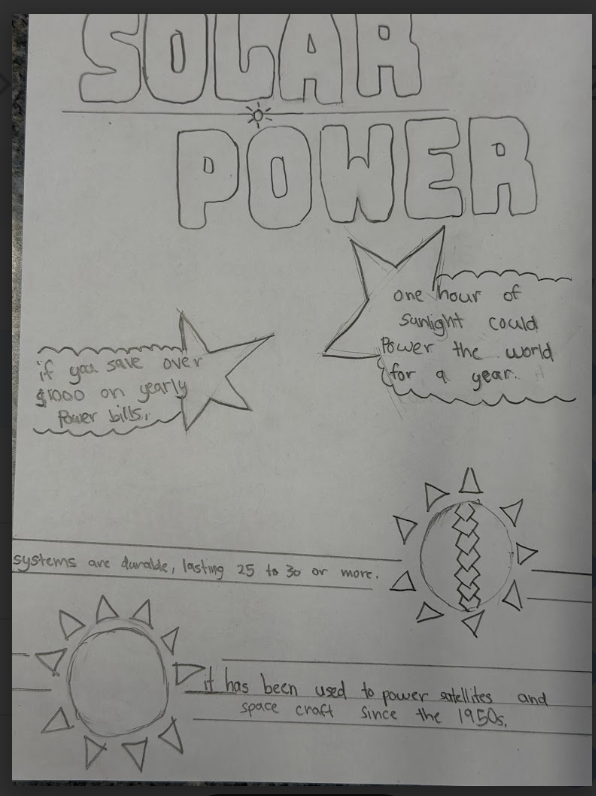 SOLAR
POWER
one hour of
sunlight could
Power the world
for a year.
if you save over
$1000 on yearly
Power bills.
systems are durable, lasting 25 to 30 or more.
it has been used to power satellites and
space craft since the 1950s.